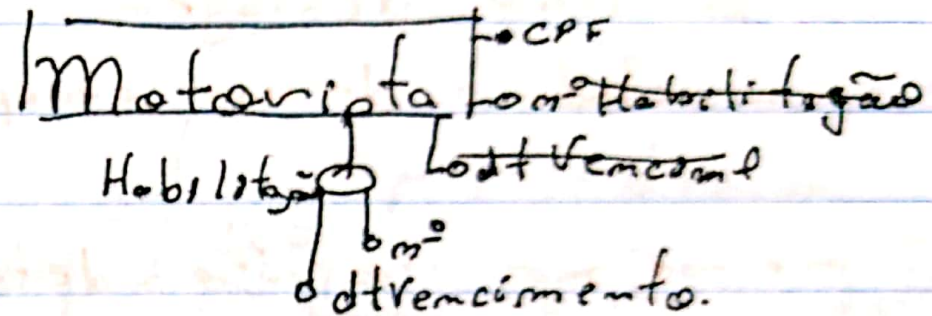 CPF
Motorista
nº Habilitação
dt Vencime
Habilitação
nº
dtvencimento.